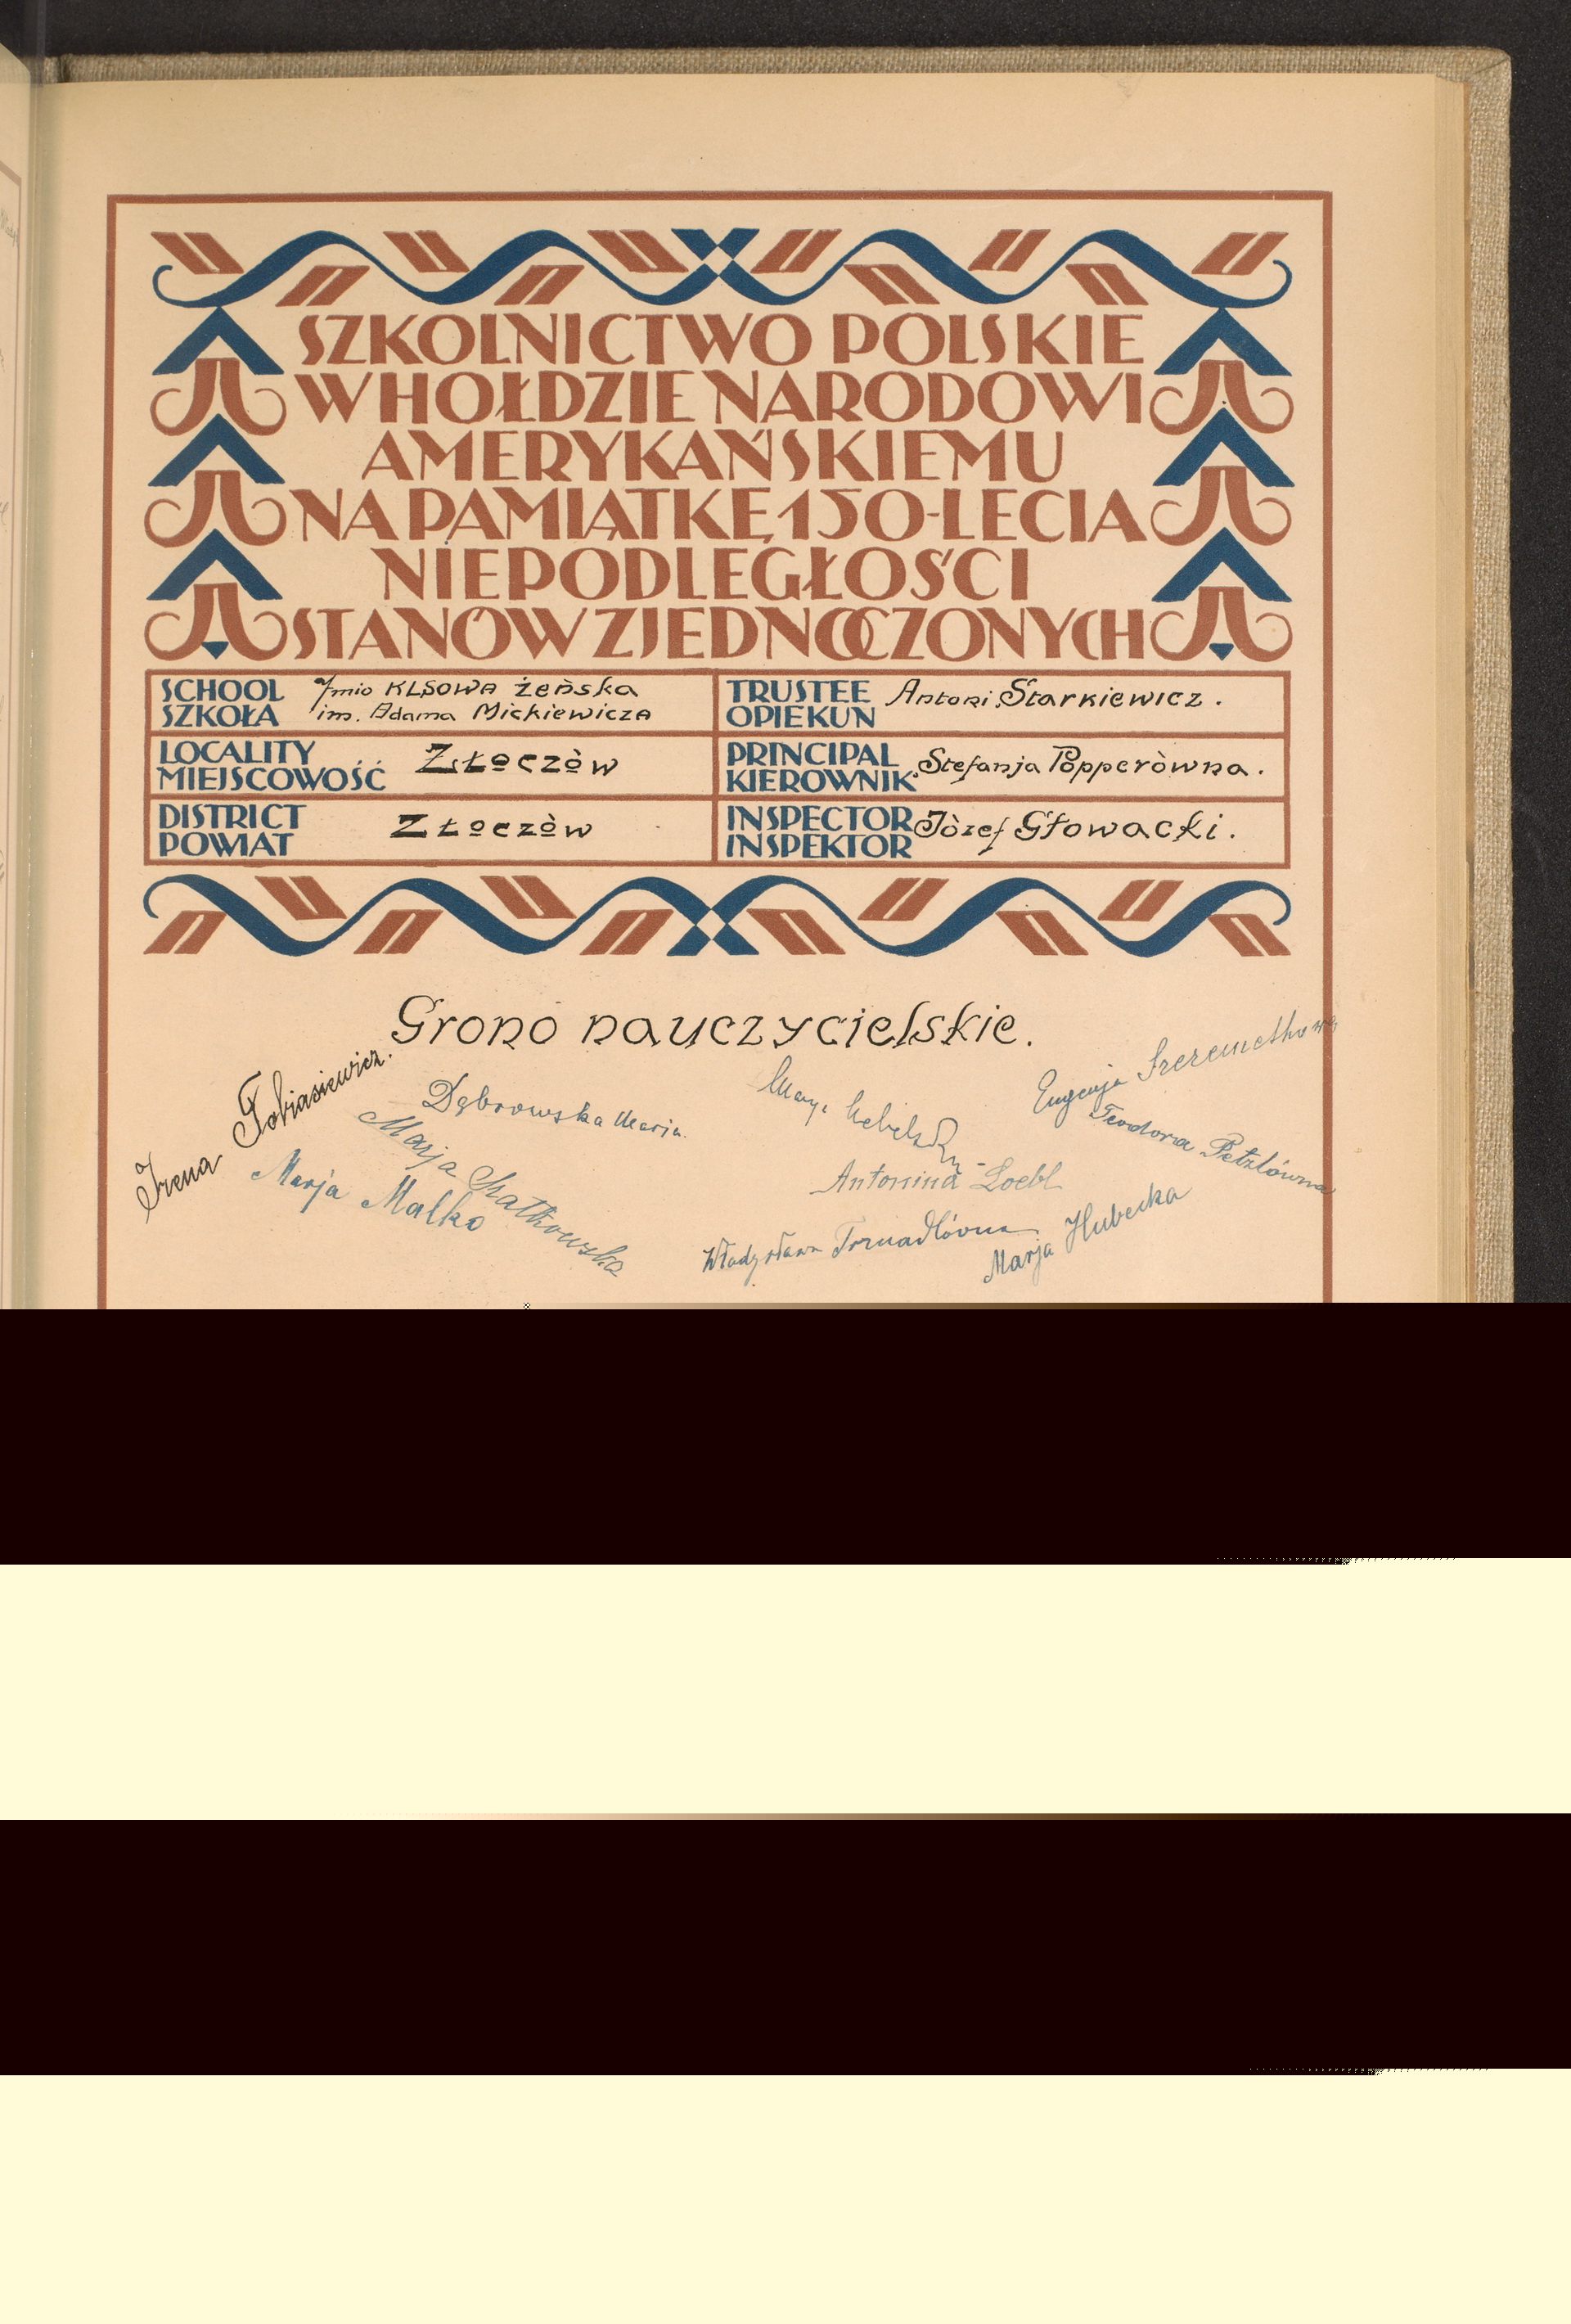 SZKOLNICTWO POLSKIE
W HOŁDZIE NARODOWI
AMERYKAŃSKIEMU
NA PAMIĄTKĘ 150-LECIA
NIEPODLEGŁOŚCI
STANÓW ZJEDNOCZONYCH
SCHOOL
SZKOŁA
7mio KLSOWA żeńska
im. Adama Mickiewicza
TRUSTEE
OPIEKUN
Antoni Starkiewicz.
LOCALITY
MIEJSCOWOŚĆ
Złoczòw
PRINCIPAL
KIEROWNIK
Stefanja Popperòwna.
DISTRICT
POWIAT
Złoczòw
INSPECTOR
INSPEKTOR
Jòzef Głowacki.
Grono nauczycielskie.
Irena Tobiasiewicz.
Dąbrowska Maria.
Marja
Marja Malko
Antonina Loebl
Eugenja
Teodora Petzlówna
Władysława
Marja Hubecka